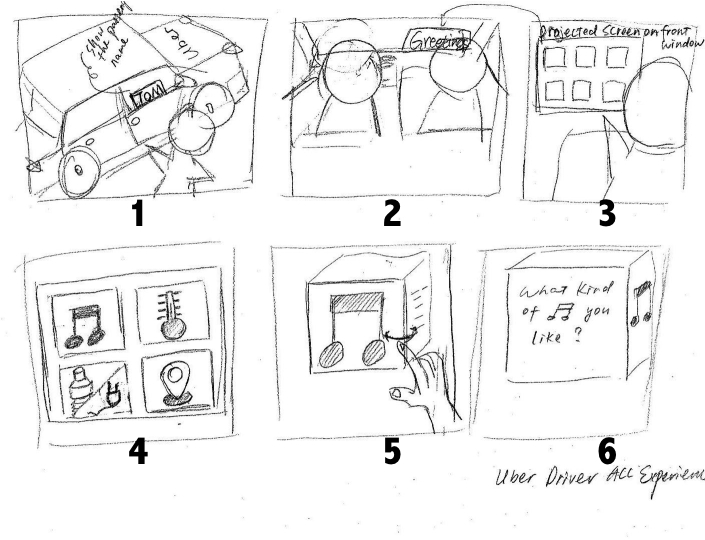 Show
the passenger
name
Uber
TOM
1
Greeting
2
projected screen on front
window
3
4
5
What kind
of you
like ?
6
Uber Driver ALL Experience